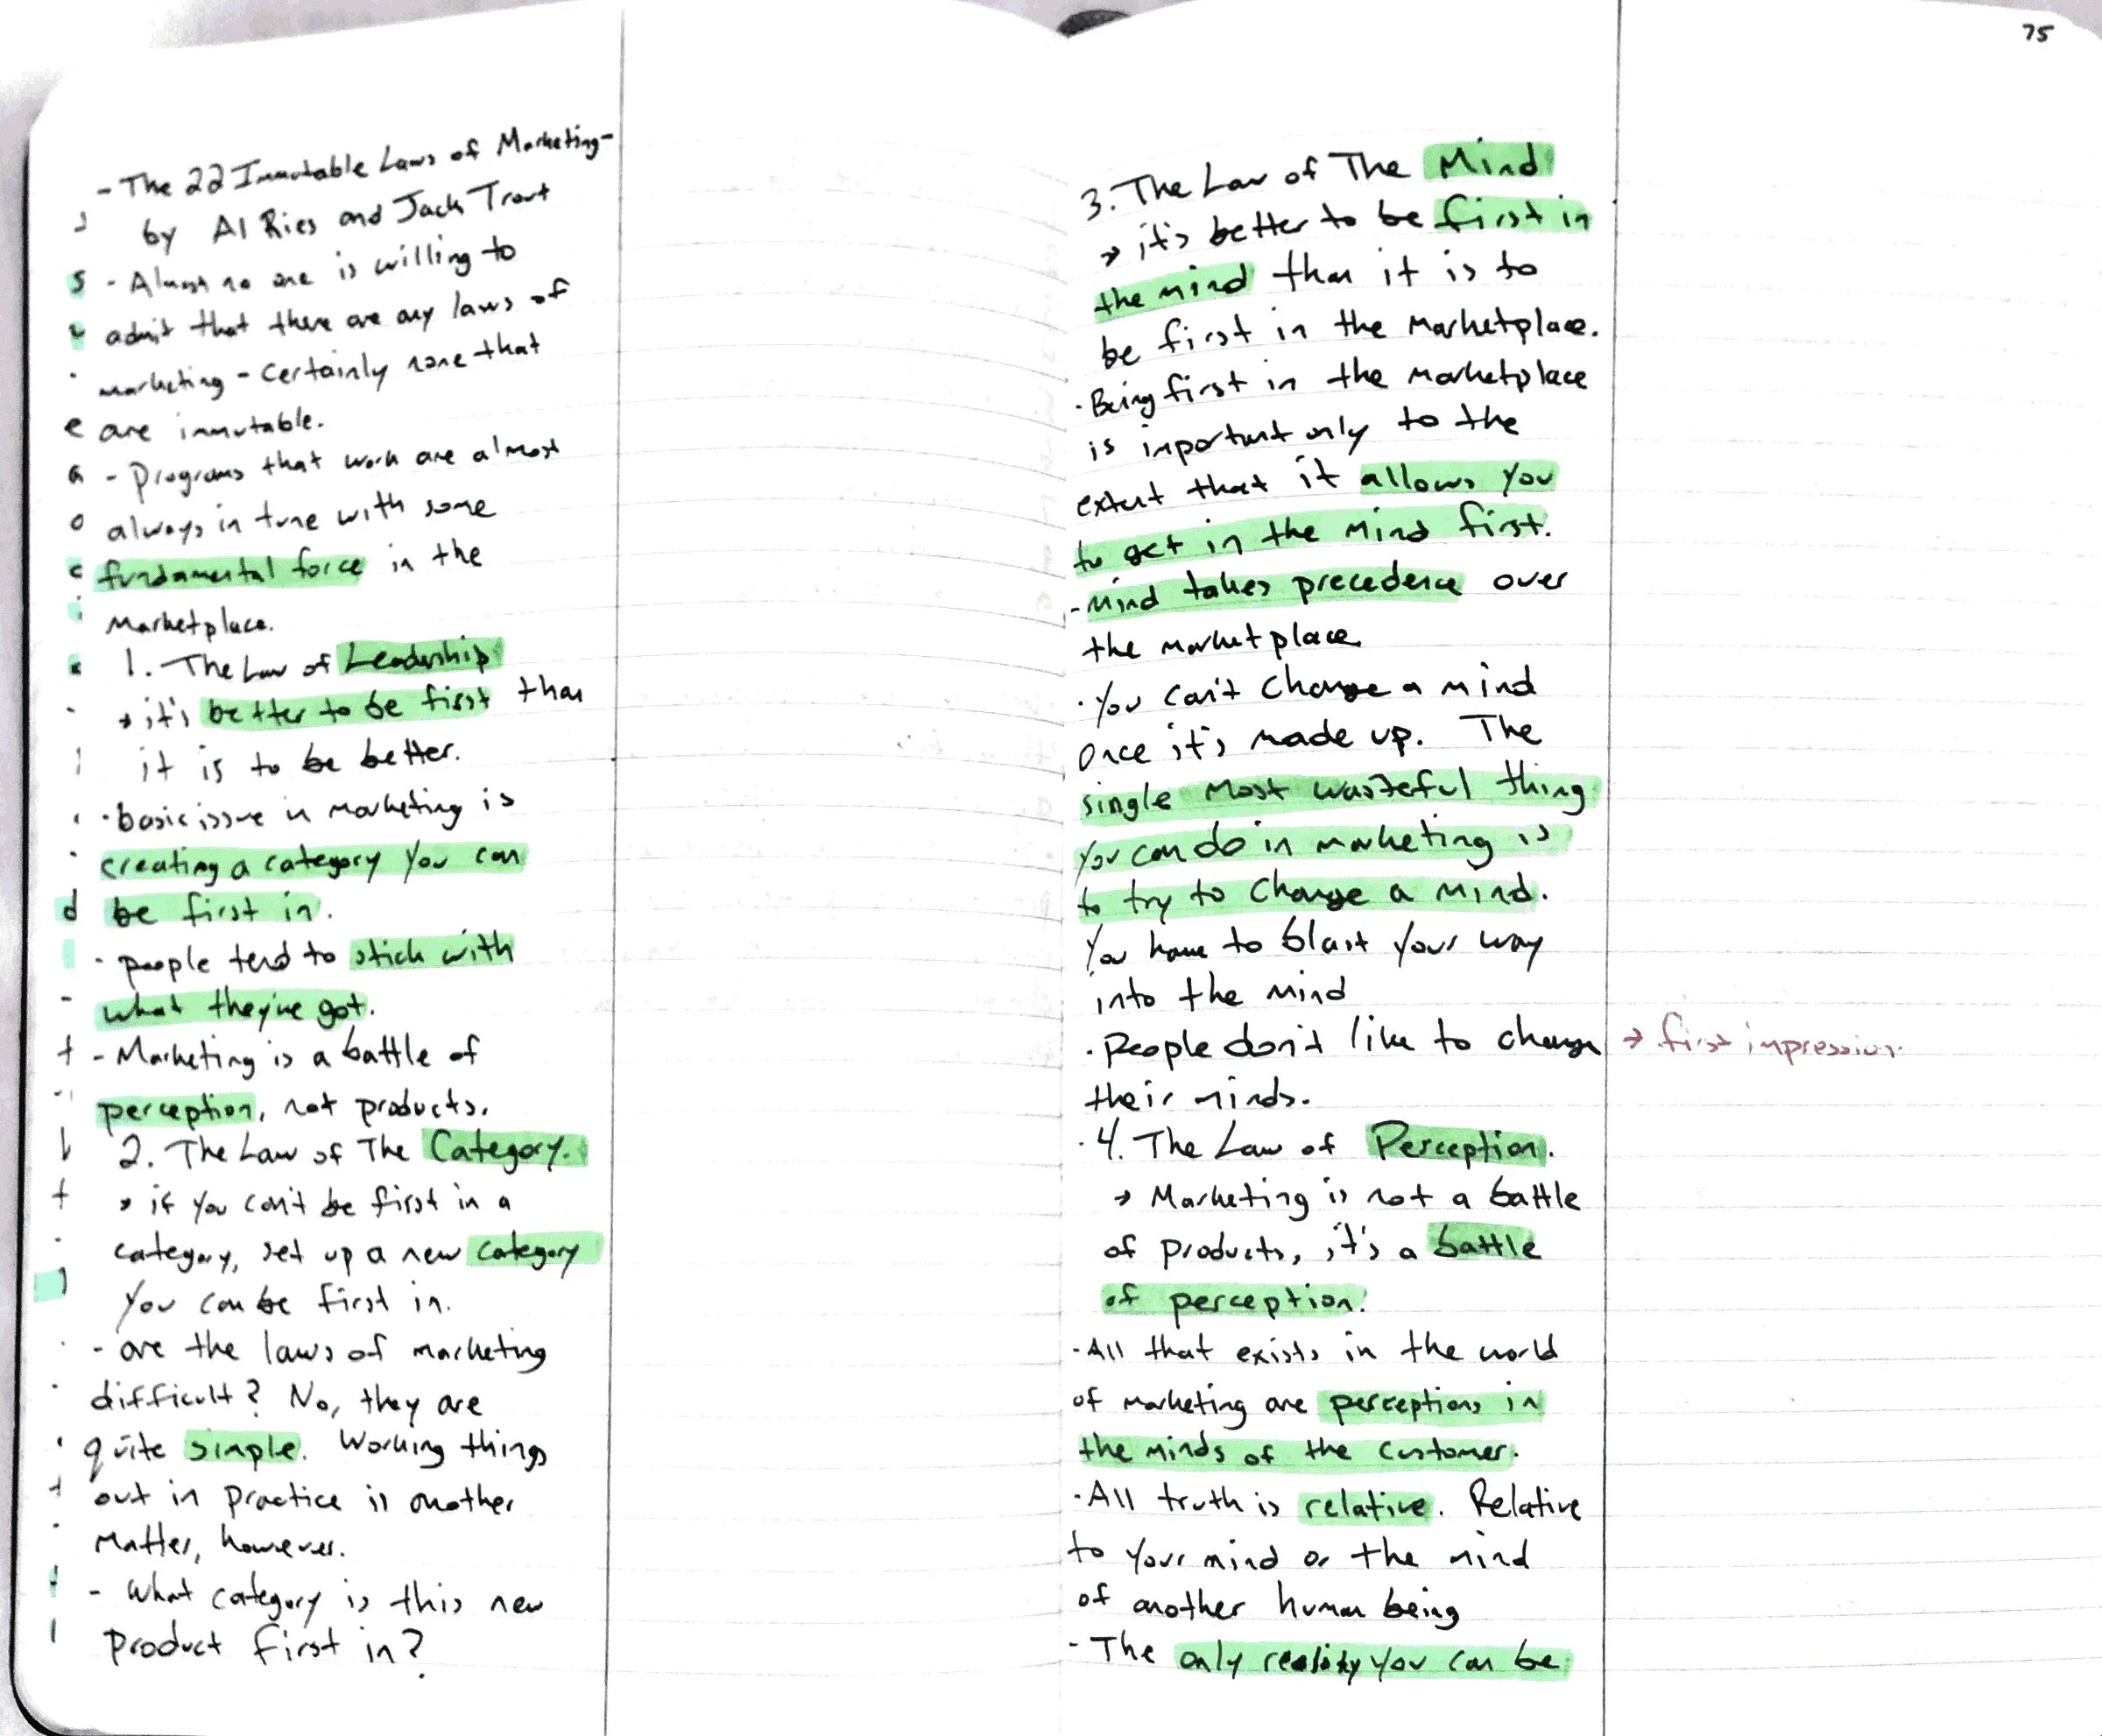 - The 22 Immutable Laws of Marketing-
by Al Ries and Jack Trout
- Almost no one is willing to
admit that there are any laws of
marketing - certainly none that
are immutable.
- Programs that work are almost
always in tune with some
fundamental force in the
marketplace.
1. The Law of Leadership
→ it's better to be first than
it is to be better.
· basic issue in marketing is
creating a category you can
be first in.
· people tend to stick with
what they've got.
- Marketing is a battle of
perception, not products.
2. The Law of The Category.
→ if you can't be first in a
category, set up a new category
you can be first in.
- are the laws of marketing
difficult? No, they are
quite simple. Working things
out in practice is another
matter, however.
- What category is this new
product first in?
75
3. The Law of The Mind
→ it's better to be first in
the mind than it is to
be first in the marketplace.
· Being first in the marketplace
is important only to the
extent that it allows you
to get in the mind first.
- Mind takes precedence over
the marketplace
· You can't change a mind
once it's made up. The
single most wasteful thing
you can do in marketing is
to try to change a mind.
You have to blast your way
into the mind
· People don't like to change → first impression
their minds.
· 4. The Law of Perception.
→ Marketing is not a battle
of products, it's a battle
of perception.
· All that exists in the world
of marketing are perceptions in
the minds of the customer.
· All truth is relative. Relative
to your mind or the mind
of another human being
- The only reality you can be